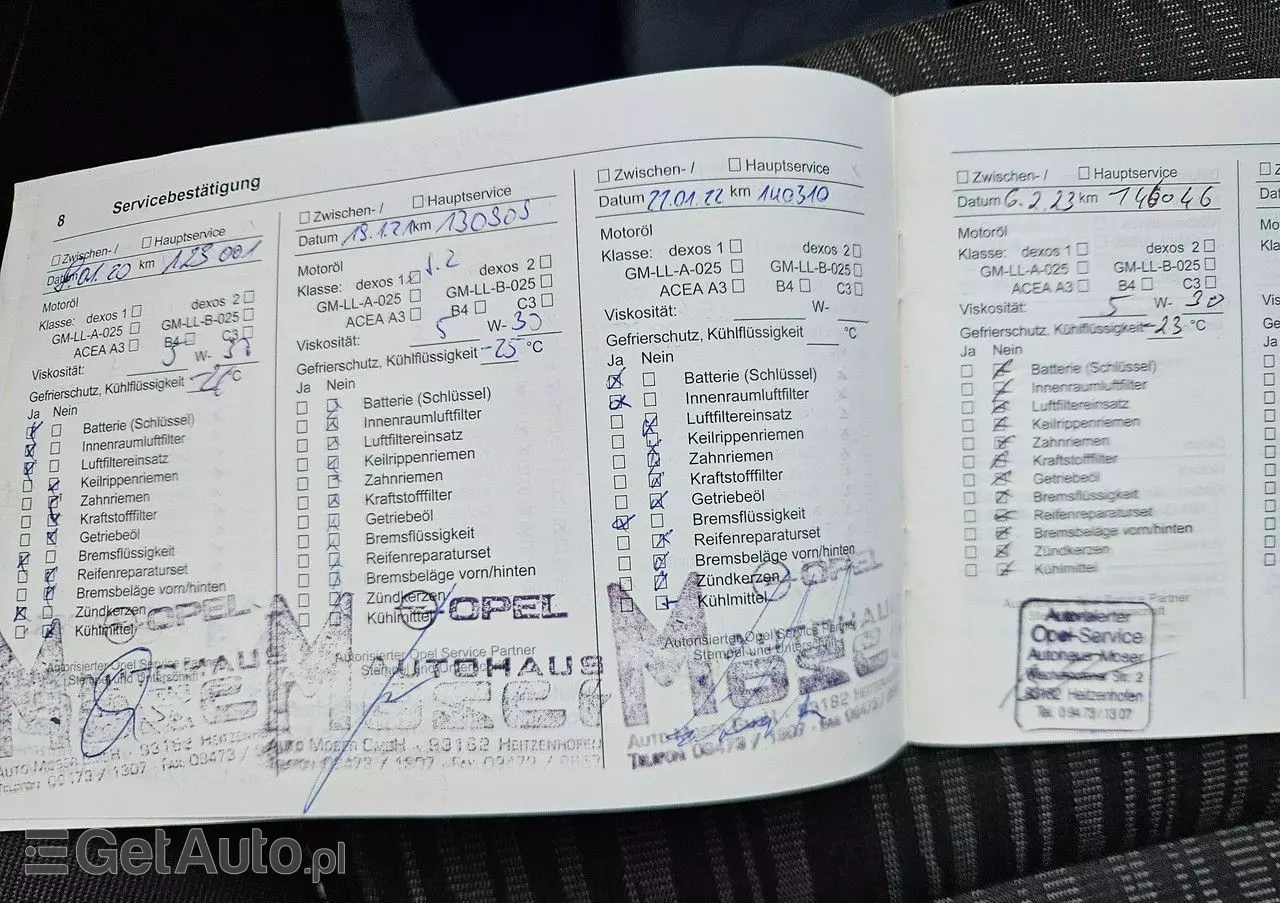 8 Servicebestätigung
Zwischen- / Hauptservice
01.20 km 123 001
Motoröl
Klasse: dexos 1 dexos 2
GM-LL-A-025 GM-LL-B-025
ACEA A3 B4 C3
Viskosität: 5 W- 30
Gefrierschutz, Kühlflüssigkeit °C
Ja Nein
Batterie (Schlüssel)
Innenraumluftfilter
Luftfiltereinsatz
Keilrippenriemen
Zahnriemen
Kraftstofffilter
Getriebeöl
Bremsflüssigkeit
Reifenreparaturset
Bremsbeläge vorn/hinten
Zündkerzen
Kühlmittel
OPEL
Autorisierter Opel Service Partner
Stempel und Unterschrift
Zwischen- / Hauptservice
Datum 19.1.21 km 130905
Motoröl
Klasse: dexos 1 dexos 2
GM-LL-A-025 GM-LL-B-025
ACEA A3 B4 C3
Viskosität: 5 W- 30
Gefrierschutz, Kühlflüssigkeit -25 °C
Ja Nein
Batterie (Schlüssel)
Innenraumluftfilter
Luftfiltereinsatz
Keilrippenriemen
Zahnriemen
Kraftstofffilter
Getriebeöl
Bremsflüssigkeit
Reifenreparaturset
Bremsbeläge vorn/hinten
Zündkerzen
Kühlmittel
OPEL
Autorisierter Opel Service Partner
AUTOHAUS
Moser
Auto Moser GmbH - 93182 Heitzenhofen
Zwischen- / Hauptservice
Datum 27.01.22 km 140310
Motoröl
Klasse: dexos 1 dexos 2
GM-LL-A-025 GM-LL-B-025
ACEA A3 B4 C3
Viskosität: W-
Gefrierschutz, Kühlflüssigkeit °C
Ja Nein
Batterie (Schlüssel)
Innenraumluftfilter
Luftfiltereinsatz
Keilrippenriemen
Zahnriemen
Kraftstofffilter
Getriebeöl
Bremsflüssigkeit
Reifenreparaturset
Bremsbeläge vorn/hinten
Zündkerzen
Kühlmittel
OPEL
Autorisierter Opel Service Partner
Stempel und Unterschrift
Moser
Telefon 09473 / 1307 - Fax 09473
Zwischen- / Hauptservice
Datum 6.2.23 km 146046
Motoröl
Klasse: dexos 1 dexos 2
GM-LL-A-025 GM-LL-B-025
ACEA A3 B4 C3
Viskosität: 5 W- 30
Gefrierschutz, Kühlflüssigkeit -23 °C
Ja Nein
Batterie (Schlüssel)
Innenraumluftfilter
Luftfiltereinsatz
Keilrippenriemen
Zahnriemen
Kraftstofffilter
Getriebeöl
Bremsflüssigkeit
Reifenreparaturset
Bremsbeläge vorn/hinten
Zündkerzen
Kühlmittel
Autorisierter
Opel-Service
Autohaus Moser
Str. 2
93182 Heitzenhofen
Tel. 0 94 73 / 13 07
GetAuto.pl